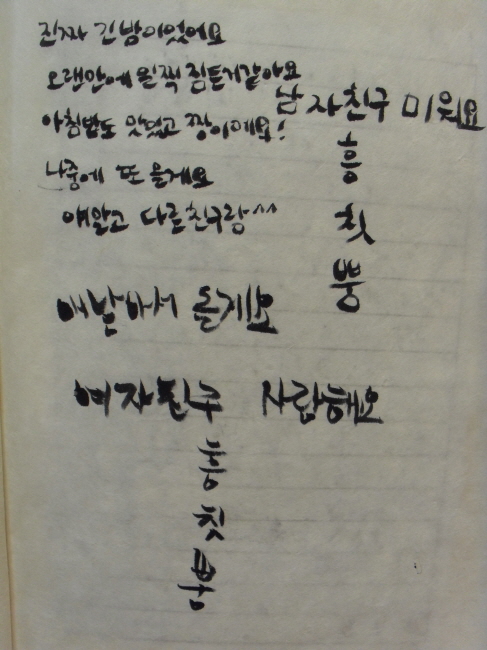 진짜 긴 밤이었어요
오랜만에 일찍 잠든거같아요
아침밥도 맛있고 짱이에요!
나중에 또 올게요
얘말고 다른친구랑^^
남자친구 미워요
흥
칫
뿡
애낳아서 올게요
여자친구 사랑해요
흥
칫
뿡